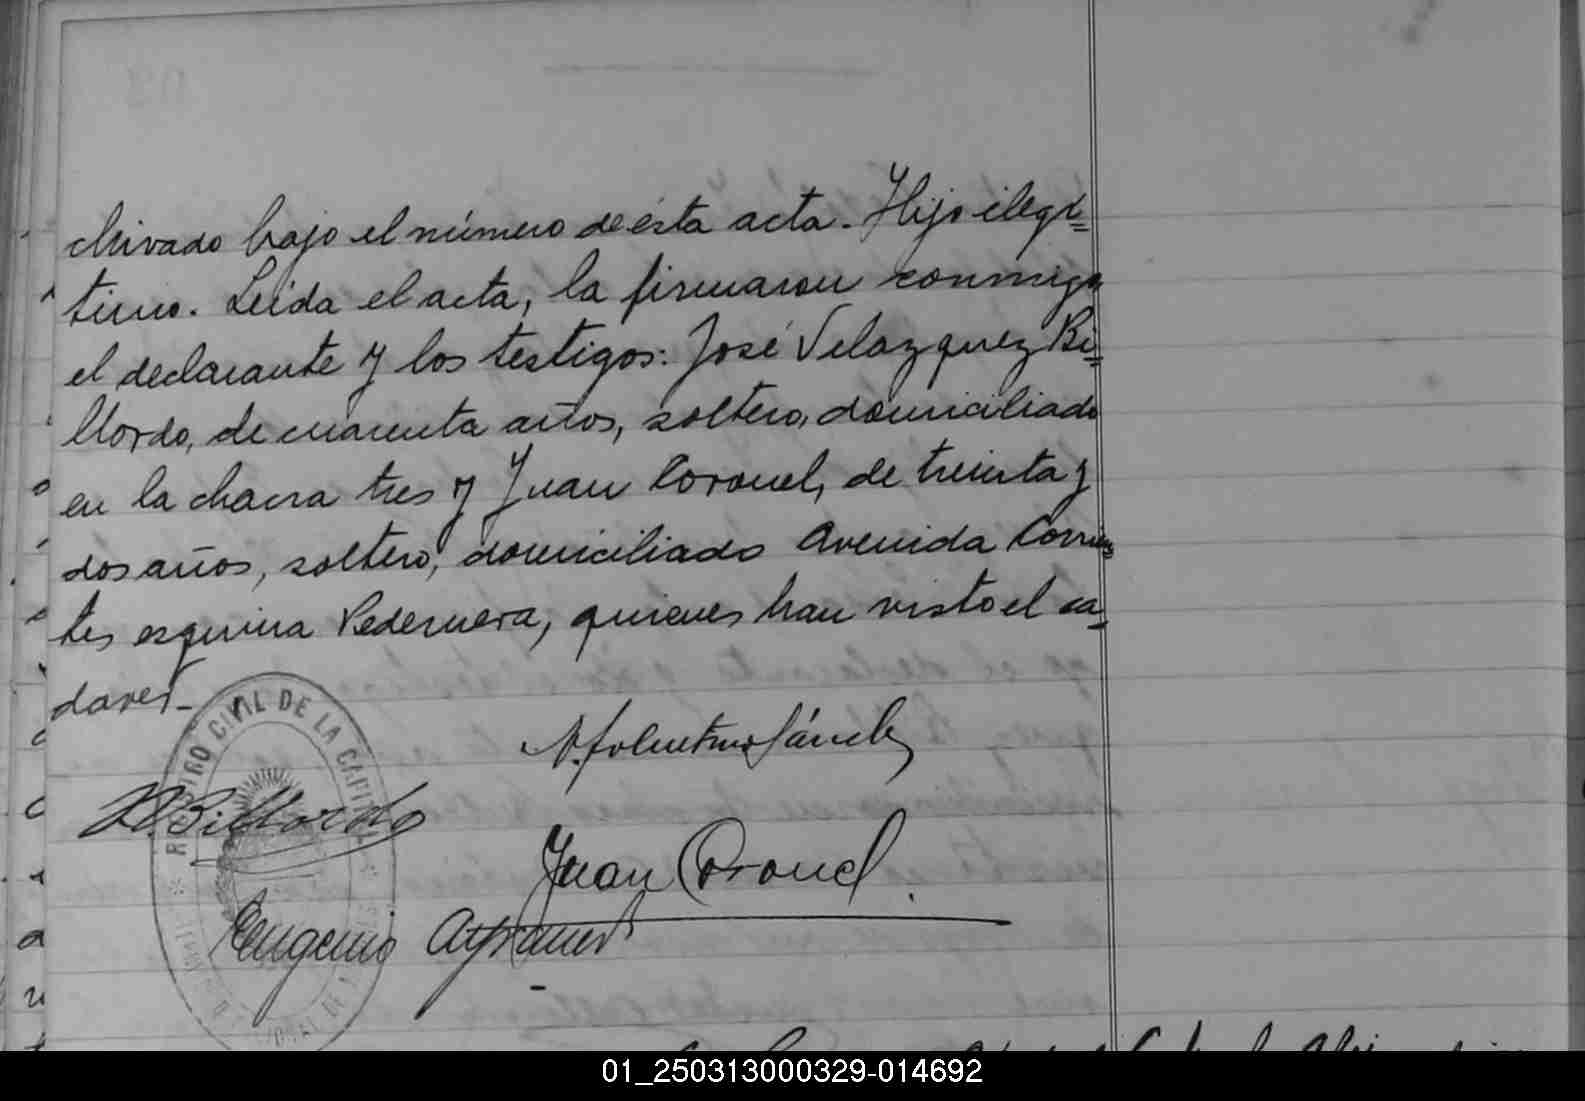 chivado bajo el número de ésta acta. Hijo ilegí=
timo. Leída el acta, la firmaron conmigo
el declarante y los testigos: José Velazquez Bi=
llordo, de cuarenta años, soltero, domiciliado
en la chacra tres y Juan Coronel, de treinta y
dos años, soltero, domiciliado Avenida Corrien
tes esquina Pedernera, quienes han visto el ca=
daver.-
REGISTRO CIVIL DE LA CAPITAL
Billordo
Juan Coronel.
Eugenio
01_250313000329-014692